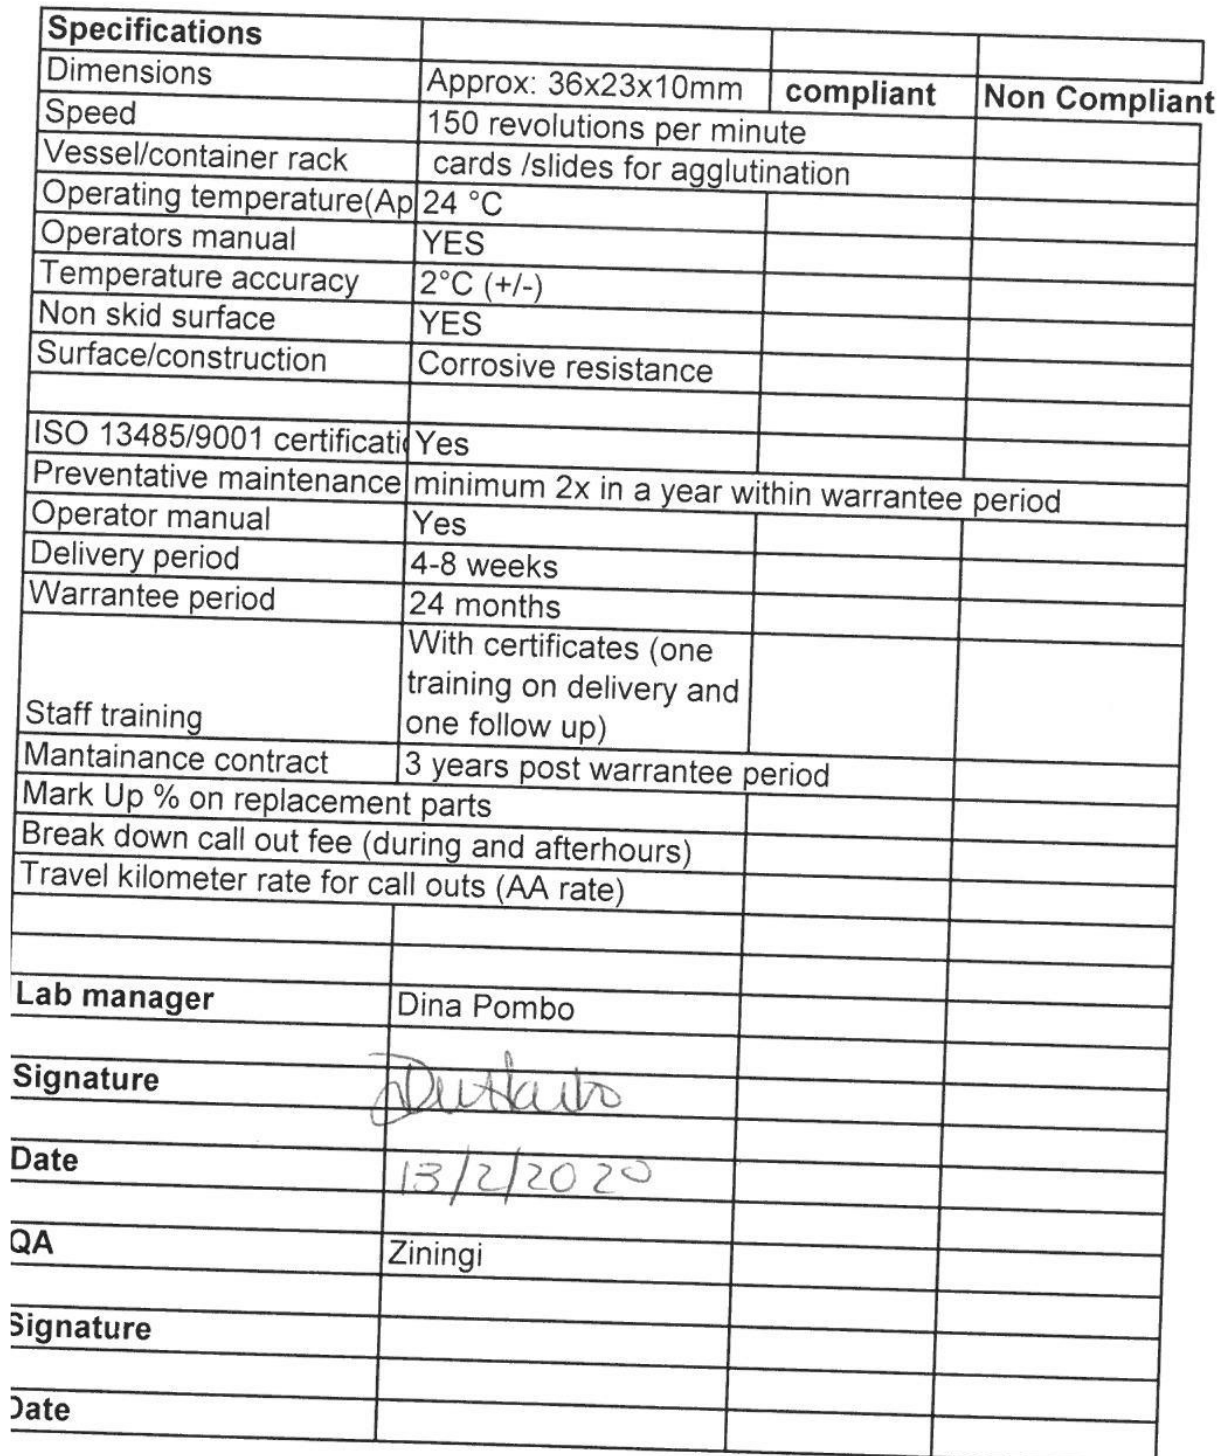 Specifications
Dimensions Approx: 36x23x10mm compliant Non Compliant
Speed 150 revolutions per minute
Vessel/container rack cards /slides for agglutination
Operating temperature(Ap 24 °C
Operators manual YES
Temperature accuracy 2°C (+/-)
Non skid surface YES
Surface/construction Corrosive resistance
ISO 13485/9001 certificati Yes
Preventative maintenance minimum 2x in a year within warrantee period
Operator manual Yes
Delivery period 4-8 weeks
Warrantee period 24 months
With certificates (one
training on delivery and
Staff training one follow up)
Mantainance contract 3 years post warrantee period
Mark Up % on replacement parts
Break down call out fee (during and afterhours)
Travel kilometer rate for call outs (AA rate)
Lab manager Dina Pombo
Signature
Date 13/2/2020
QA Ziningi
Signature
Date